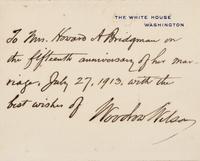 THE WHITE HOUSE
WASHINGTON
To Mrs. Howard A Bridgman on
the fifteenth anniversary of her mar-
riage, July 27, 1913, with the
best wishes of Woodrow Wilson